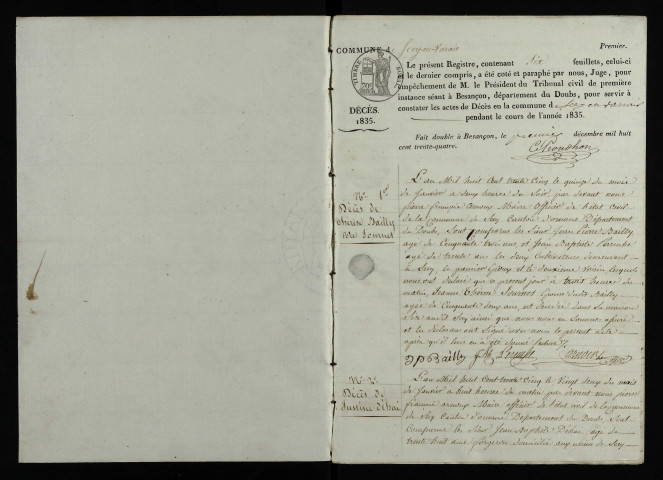 Premier.
COMMUNE d
Scey en Varais
Le présent Registre, contenant Six feuillets, celui-ci et
le dernier compris, a été coté et paraphé par nous, Juge, pour
l'empêchement de M. le Président du Tribunal civil de première
instance séant à Besançon, département du Doubs, pour servir à
constater les actes de Décès en la commune d Scey en Varais
pendant le cours de l'année 1835.
TIMBRE ROYAL
DÉCÈS.
1835.
Fait double à Besançon, le premier décembre mil huit
cent trente-quatre.
No 1er
Décès de
Bailly
née Journot
L'an Mil huit Cent trente Cinq le quinze du mois
de Janvier à deux heures du Soir par devant nous
pierre françois arnoux Maire officier de l'état Civil
de la Commune de Scey Canton d'ornans Département
du Doubs, Sont Comparus les Sieur Jean Pierre Bailly
agé de Cinquante trois ans, et Jean Baptiste
agé de trente ans les deux Cultivateurs demeurant
à Scey, le premier Epoux et le deuxième Voisin lesquels
nous ont déclaré que ce présent jour à trois heures du
matin, Jeanne Journot Epouse dudit Bailly
agée de Cinquante deux ans, est décédée dans sa maison
audit Scey ainsi que nous nous en Sommes assuré
et les déclarans ont Signé avec nous le présent acte
après qu'il leur en a été donné lecture
J P Bailly
No 2.
Décès de
Justice Déhai
L'an Mil huit Cent trente Cinq le Vingt deux du mois
de Janvier à huit heures du matin par devant nous pierre
françois arnoux Maire officier de l'état civil de la Commune
de Scey Canton d'ornans Département du Doubs, Sont
Comparus le Sieur Jean Baptiste Déhai agé de
trente huit ans forgeron domicilié aux usines de Scey